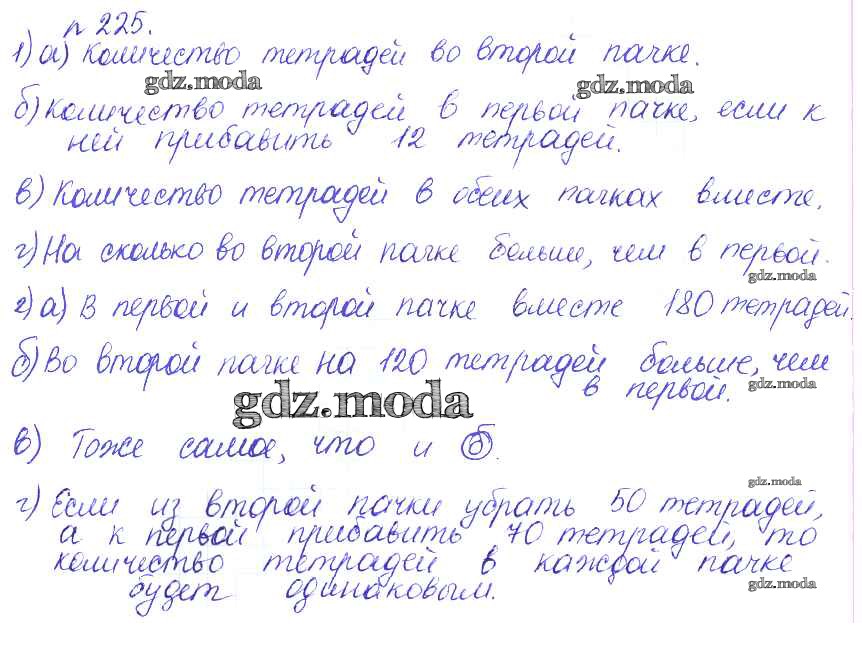 № 225.
1) а) Количество тетрадей во второй пачке.
gdz.moda gdz.moda
б) Количество тетрадей в первой пачке, если к
ней прибавить 12 тетрадей.
в) Количество тетрадей в обеих пачках вместе.
г) На сколько во второй пачке больше, чем в первой.
gdz.moda
2) а) В первой и второй пачке вместе 180 тетрадей.
б) Во второй пачке на 120 тетрадей больше, чем
в первой.
gdz.moda
gdz.moda
в) Тоже самое, что и б.
gdz.moda
г) Если из второй пачки убрать 50 тетрадей,
а к первой прибавить 70 тетрадей, то
количество тетрадей в каждой пачке
будет одинаковым.
gdz.moda